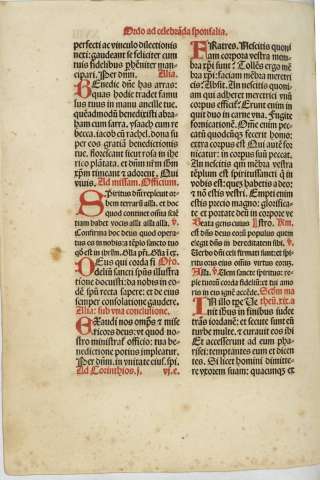 Ordo ad celebrãda sponsalia.
perfecti ac vinculo dilectionis
nexi: gaudeant se feliciter cum
tuis fidelibus p̃hẽniter man-
cipari. Per dñm. Alia.
Benedic dñe has arras:
quas hodie tradet famu
lus tuus in manu ancille tue.
quẽadmodũ benedixisti abra-
ham cum sarra, ysaach cum re
becca. iacob cũ rachel. dona su
per eos gratiã benedictionis
tue. florescant sicut rosa in ihe
rico plãtata. et dñm nrm ihm
xpm timeant et adorent. Qui
vivis. Ad missam. Officium.
Spiritus dñi replevit or
bem terrarũ alla. et hoc
quod continet omnia sciẽ
tiam habet vocis alla alla alla. v̄.
Confirma hoc deus quod opera
tus es in nobis: a tẽplo sancto tuo
qđ est in
Deus qui corda fi Oro.
deliũ sancti spũs illustra
tione docuisti: da nobis in eo-
dẽ spũ recta sapere: et de eius
semper consolatione gaudere.
Alia: sub vna conclusione.
Exaudi nos omps et mise
ricors deus: vt quod no-
stro ministrat officio: tua be
nedictione potius impleatur.
Per dñm. in vnitate eiusdẽ spi.
Ad Corinthios .j. vj.c.
Fratres. Nescitis quoni
am corpora vestra mem
bra xpi sunt? Tollẽs ergo mẽ
bra xpi: faciam mẽbra meretri
cis? Absit. An nescitis quoni-
am qui adheret meretrici vnũ
corpus efficit? Erunt enim in
quit duo in carne vna. Fugite
fornicationẽ. Oẽ enim pec-
catũ quodcũqz fecerit homo:
extra corpus est. Qui autẽ for
nicatur: in corpus suũ peccat.
An nescitis qm mẽbra vestra
tẽplum est spiritussancti q in
vobis est: quẽ habetis a deo: et
nõ estis vestri. Empti enim
estis precio magno: glorifica-
te et portate deũ in corpore ve
Beata gens cuius stro. Rm.
est dñs deus eorũ: populus quem
elegit dñs in hereditatem sibi. v̄.
Verbo dñi celi firmati sunt: et spi-
ritu oris eius omnis virtus eorũ.
Alla. v̄. Veni sancte spiritus: re-
ple tuorũ corda fideliũ: et tui amo
ris in eis ignẽ accẽde. Scdm ma
In illo tpe Ve theũ. xix. a
nit ihus in finibus iudee
trãs iordanẽ: et secute sunt eũ
turbe multe, et curauit eos ibi
Et accesserunt ad eum pha
risei: temptantes eum et dicen
tes. Si licet homini dimitte-
re vxorem suam: quacunqz ex